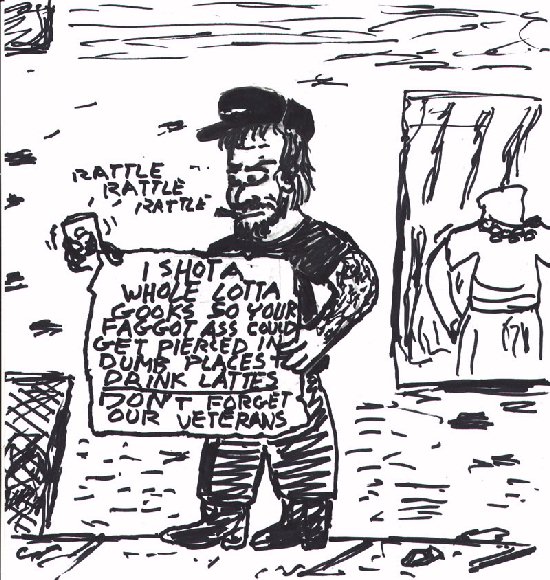 RATTLE
RATTLE
RATTLE
I SHOT A
WHOLE LOTTA
GOOKS SO YOUR
FAGGOT ASS COULD
GET PIERCED IN
DUMB PLACES +
DRINK LATTES
DON'T FORGET
OUR VETERANS